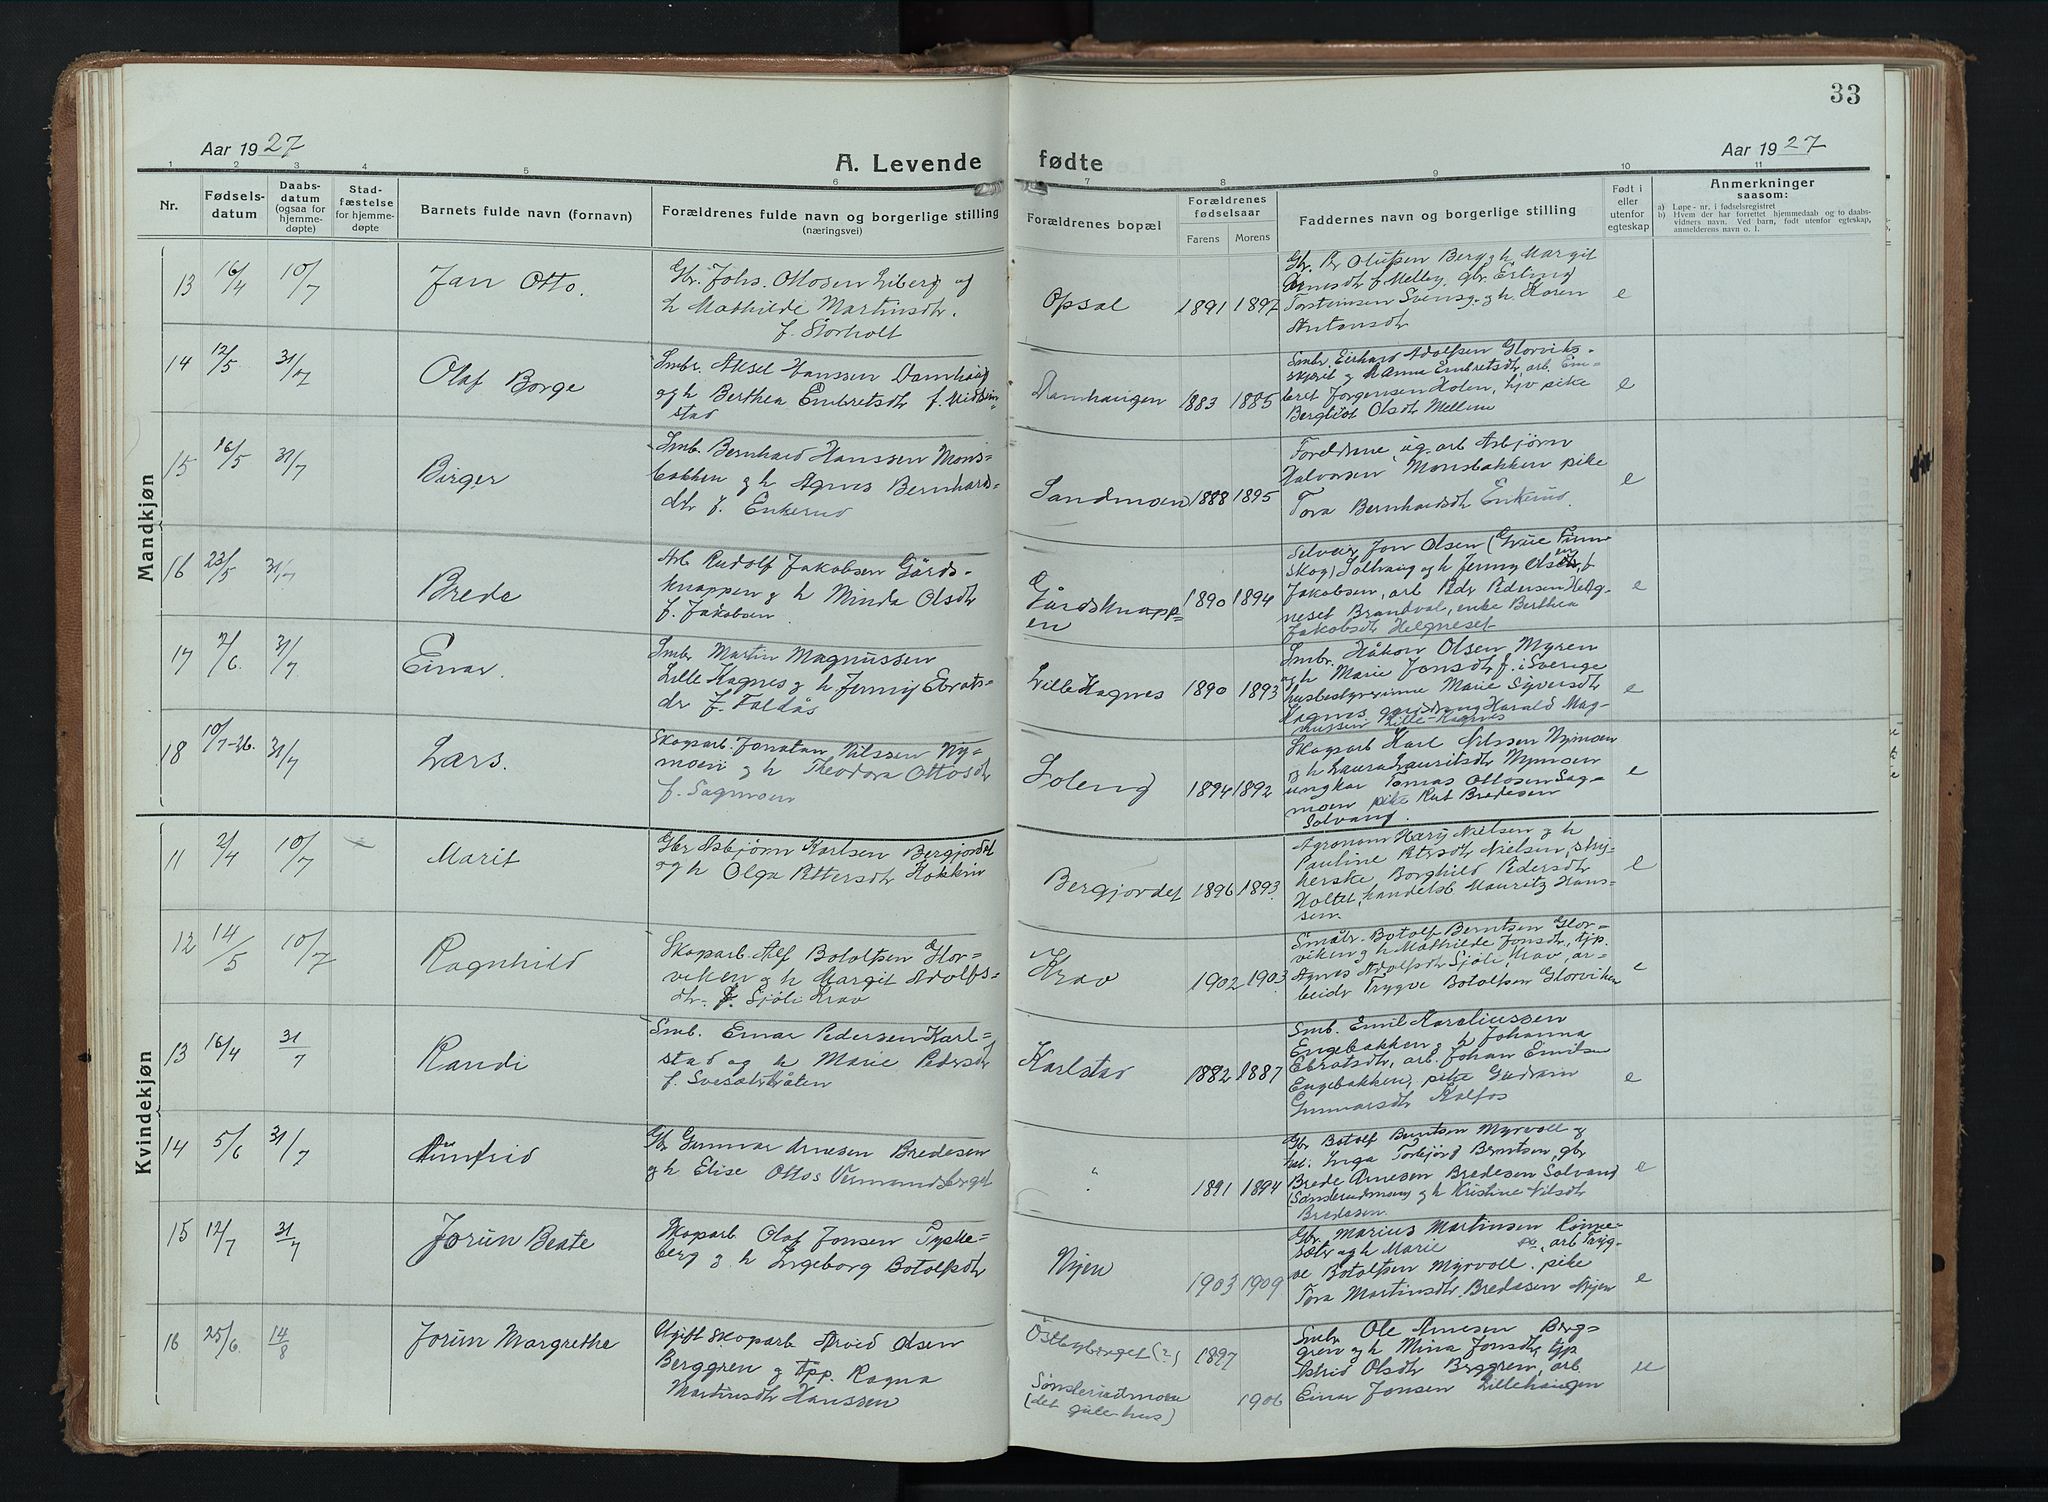 33
Aar 1927
A. Levende fødte
Aar 1927
1 2 3 4 5 6 7 8 9 10 11
Nr.
Fødsels-
datum
Daabs-
datum
(ogsaa for
hjemme-
døpte)
Stad-
fæstelse
for hjemme-
døpte
Barnets fulde navn (fornavn)
Forældrenes fulde navn og borgerlige stilling
(næringsvei)
Forældrenes bopæl
Forældrenes
fødselsaar
Farens
Morens
Faddernes navn og borgerlige stilling
Født i
eller
utenfor
egteskap
Anmerkninger
saasom:
a) Løpe - nr. i fødselsregistret
b) Hvem der har forrettet hjemmedaab og to daabs-
vidners navn. Ved barn, født utenfor egteskap,
anmelderens navn o. l.
Mandkjøn
13 16/4 10/7 Jan Otto.
Gbr. Johs. Ottosen Liberg og
h Mathilde Martinsdtr.
f. Storholt
Opsal 1891 1897
Gbr. Pr Olufsen Berg g h Margit
Arnesdtr f Melby, gbr Erling
Torsteinsen Svensg. g h Karen
Antonsdtr
e
14 12/5 31/7 Olaf Borge
Smbr. Aksel Hanssen Damhaug
og h Berthea Embretsdtr f. Midtsin-
stad
Damhaugen 1883 1885
Smbr. Eirhard Adolfsen Glorvik-
skjæret g h Anna Embretsdtr, arb. Em-
bret Jørgensen Holen, hjv pike
Bergliot Olsdtr Mellem
e
15 16/5 31/7 Birger
Smb. Bernhard Hanssen Mons-
bakken g h Agnes Bernhards-
dtr f. Enkerud
Sandmoen 1888 1895
Foreldrene, ug. arb Asbjørn
Halvorsen Monsbakken pike
Tora Bernhardsdtr Enkerud.
e
16 23/5 31/7 Brede
Arb Rudolf Jakobsen Gårds-
knappen g h Minda Olsdtr
f. Jakobsen
Gårdsknapp-
en 1890 1894
Selveier Jon Olsen (Grue Finn-
skog) Solhaug g h Jenny Olsen, f
Jakobsen, arb Pedr Pedersen Helg-
neset Brandval, enke Berthea
Jakobsdtr Helgneset
e
17 7/6 31/7 Einar.
Smbr Martin Magnussen
Lille Kagnes g h Jenny Ebrets-
dr f. Faldås
Lille Kagnes 1890 1893
Smbr. Håkon Olsen Myren
og h Marie Jonsdtr f. i Sverige
husbestyrerinne Marie Syversdtr
Kagnes. gårddreng Harald Mag-
nussen Lille-Kagnes
e
18 10/7-26. 31/7 Lars.
Skogarb. Jonatan Nilssen Ny-
moen g h Theodora Ottosdtr
f. Sagmoen
Soleng 1894 1892
Skogarb Karl Nilssen Nymoen
g h Laura Lauritsdtr Nymoen
ungkar Tomas Ottosen Sag-
moen pike Rut Bredesen
Solvang.
e
Kvindekjøn
11 2/4 10/7 Marit
Gbr Asbjørn Karlsen Bergjordet
og h Olga Pettersdtr Kokkin
Bergjordet 1896 1893
Agronom Harry Nielsen g h
Pauline Petersdtr Nielsen, sty-
herske Borghild Pedersdtr
Holter, handelsb Mauritz Hans-
sen
e
12 14/5 10/7 Ragnhild
Skogarb. Alf Botolfsen Glor-
viken g h Margit Adolfs-
dtr. f. Sjøli Krav
Krav 1902 1903
Småbr. Botolf Berntsen Glor-
viken g h Mathilde Jonsdtr, tjp.
Agnes Adolfsdtr Sjøli, Krav, ar-
beidr Trygve Botolfsen Glorviken
e
13 16/4 31/7 Randi
Smb. Einar Pedersen Karl-
stad og h Marie Pedersdtr
f. Svesætrbråten
Karlstad 1882 1887
Smb. Emil Kareliussen
Engebakken g h Johanna
Ebretsdtr, arb. Johan Emilsen
Engebakken, pike Gudrun
Gunnarsdtr Kalfos
e
14 5/6 31/7 Aunfrid
Gbr Gunnar Arnesen Bredesen
g h Elise Ottos Vermundsberget
" 1891 1894
Gbr Botolf Berntsen Myrvoll g
h. Inga Torbjørg Berntsen, gbr
Brede Arnesen Bredesen Solvang
(Sønderudmoen) g h Kristine Nilsdtr
Bredesen.
e
15 12/7 31/7 Jorun Beate
Skogarb Olaf Jonsen Tyske-
berg g h Ingeborg Botolfsdtr
Nyen 1903 1909
Gbr. Marius Martinsen Rønne-
sætr og h Marie, arb Tryg-
ve Botolfsen Myrvoll. pike
Tora Martinsdtr. Bredesen Nyen
e
16 25/6. 14/8 Jorun Margrethe
Ugift Skogarb Arvid Olsen
Berggren g tpp. Ragna
Martinsdtr Hanssen
Østbyberget (?) 1897
Sønderudmoen
(det gule hus) 1906
Smbr Ole Arnesen Berg-
gren g h Mina Jonsdtr, tjp
Astrid Olsdtr Berggren, arb
Einar Jonsen Lillehaugen
u